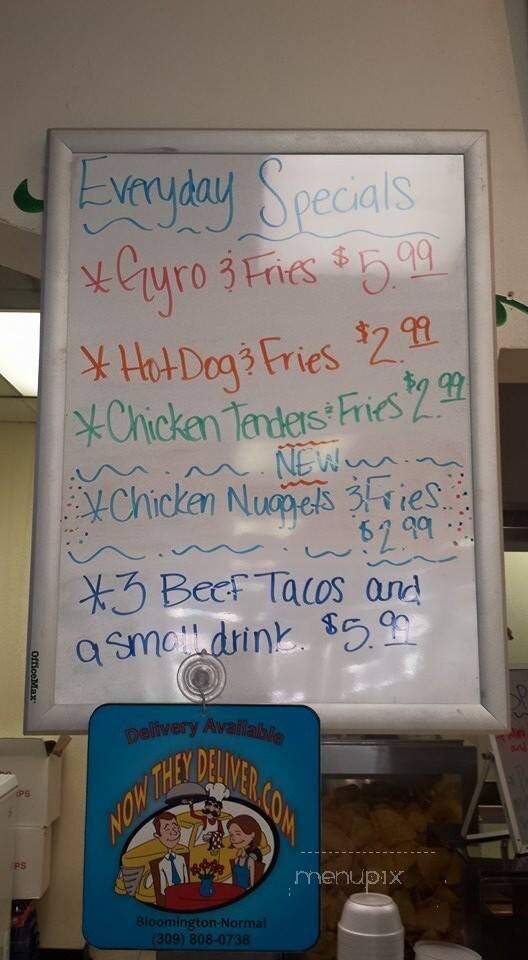 Everyday Specials
* Gyro & Fries $5.99
* Hot Dog & Fries $2.99
* Chicken Tenders & Fries $2.99
NEW
* Chicken Nuggets & Fries
$2.99
* 3 Beef Tacos and
a small drink. $5.99
OfficeMax
Delivery Available
NOW THEY DELIVER.COM
Bloomington-Normal
(309) 808-0738
menupix